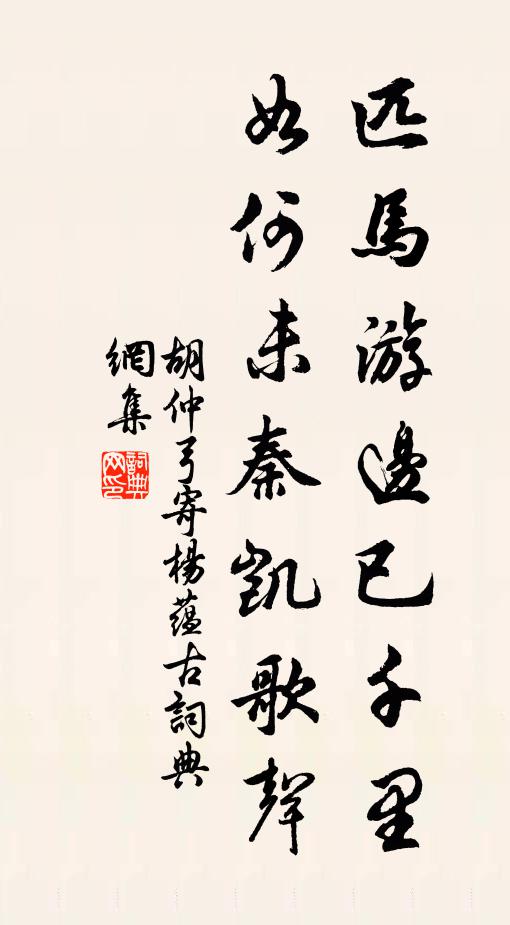 匹馬游邊已千里
如何未秦凱歌聲
胡仲弓寄楊蘊古詞典
網集
詞典網印